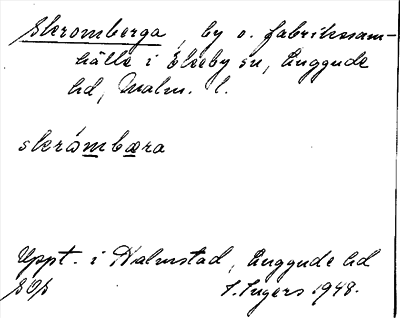 Skromberga, by o. fabrikssam-
hälle i Ekeby sn, Luggude
hd, Malm. l.
skrámbæra
Uppt. i Halmstad, Luggude hd
S. Ingers 1948.